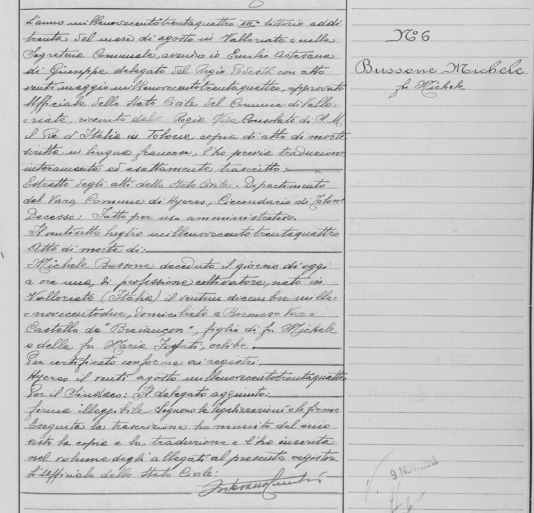 L'anno millenovecentotrentaquattro XII° littorio addì
trenta del mese di agosto in Valloriate e nella
Segreteria Comunale, avendo io Emilio
di Giuseppe delegato del Regio Podestà con atto
venti maggio millenovecentotrentaquattro, approvato
Ufficiale dello Stato Civile del Comune di Vallo=
riate, ricevuto dal Regio Vice Consolato di S. M.
il Re d'Italia in Tolone copia di atto di morte
scritta in lingua francese, l'ho previa traduzione
interamente ed esattamente trascritto:
Estratto degli atti dello Stato Civile. Dipartimento
del Varo Comune di Hyeres, Circondario di Tolone
Decesso: Fatto per uso amministrativo.
Il ventisette luglio millenovecentotrentaquattro
Atto di morte di:
Michele Bussone deceduto il giorno di oggi
a ore una, di professione coltivatore, nato in
Valloriate (Italia) il ventun dicembre mille=
novecentodue, domiciliato a Bormes Var=
Castello de "Breiançon", figlio di fu Michele
e della fu Maria celibe.
Per certificato conforme ai registri
Hyeres il venti agosto millenovecentotrentaquattro
Per il Sindaco: Il delegato aggiunto:
firma illeggibile
Eseguita la trascrizione ho munito del mio
visto la copia e la traduzione e l'ho inserita
nel volume degli allegati al presente registro.
L'ufficiale dello Stato Civile:
N° 6
Bussone Michele
fu Michele
9 NOV.